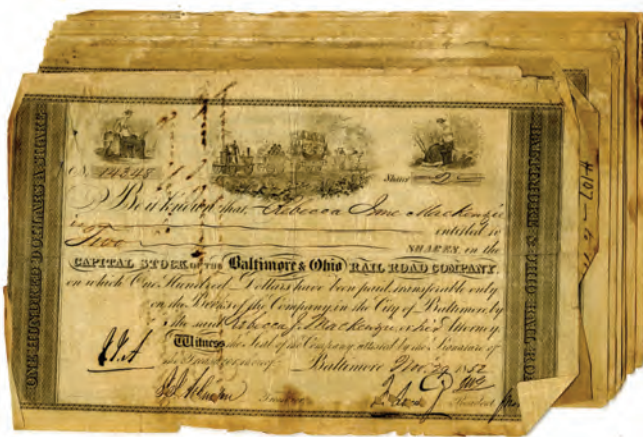 No. 14248 Shares 2
Be it known that, Rebecca Jane Mackenzie
is entitled to
Two SHARES in the
CAPITAL STOCK OF THE Baltimore & Ohio RAIL ROAD COMPANY.
on which One Hundred Dollars have been paid, transferable only
on the Books of the Company in the City of Baltimore, by
the said Rebecca J. Mackenzie or her Attorney.
Witness the Seal of the Company, attested by the Signature of
the Treasurer
Baltimore Nov. 1852
Treasurer President
ONE HUNDRED DOLLARS A SHARE